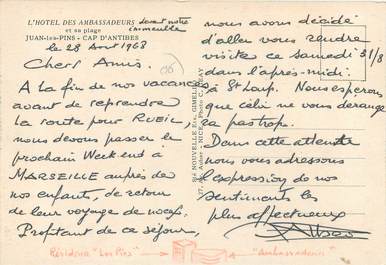 L'HOTEL DES AMBASSADEURS devant notre
et sa plage immeuble
JUAN-les-PINS - CAP D'ANTIBES
le 28 Aout 1968
Chers Amis.
A la fin de nos vacances
avant de reprendre
la route pour RUEIL,
nous devons passer le
prochain Week end à
MARSEILLE auprès de
nos enfants, de retour
de leur voyage de noces.
Profitant de ce séjour,
nous avons décidé
d'aller vous rendre
visite ce samedi 31/8
dans l'après-midi.
à St Loup. Nous espérons
que cela ne vous dérange
ra pas trop.
Dans cette attente
nous vous adressons
l'expression de nos
sentiments les
plus affectueux
Résidence "Les Pins"
"Ambassadeurs"